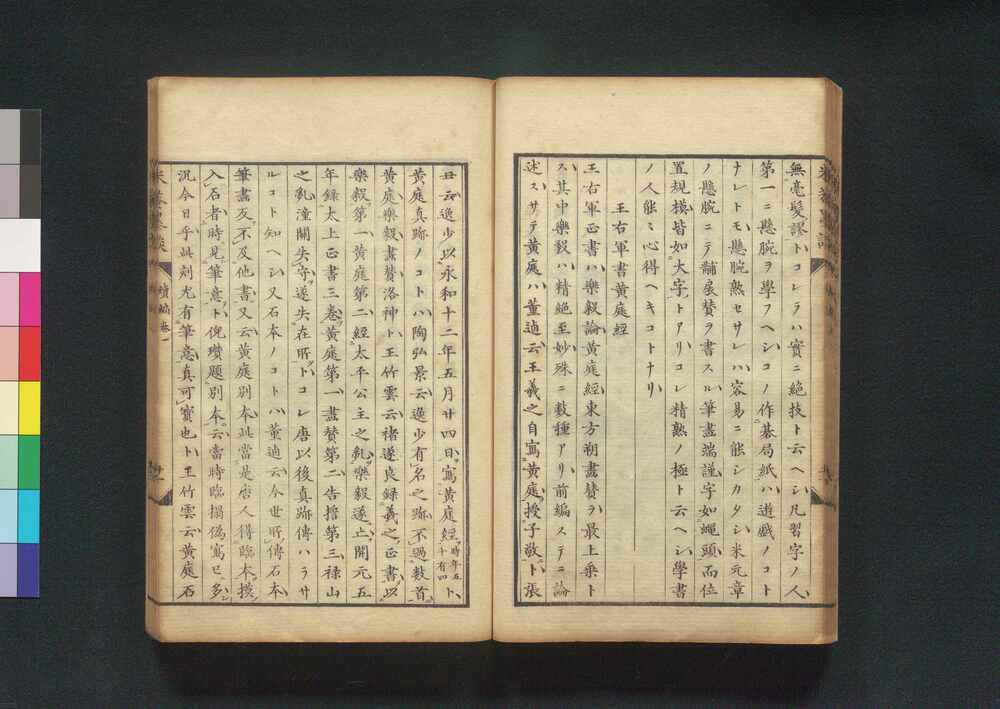 無毫髮謬トコレラハ實ニ絶技ト云ヘシ凡習字ノ人
第一ニ懸腕ヲ學フヘシコノ作棊局紙ハ遊戯ノコト
ナレトモ懸腕熟セサレハ容易ニ能シカタシ米元章
ノ懸腕ニテ黼扆賛ヲ書スル筆畫端謹字如蠅頭而位
置規模皆如大字トアリコレ精熟ノ極ト云ヘシ學書
ノ人能々心得ヘキコトナリ
王右軍書黄庭經
王右軍正書ハ樂毅論黄庭經東方朔畫賛ヲ最上乗ト
ス其中樂毅ハ精絶至妙殊ニ數種アリ前編ステニ論
述スサテ黄庭ハ董逌云王羲之自寫黄庭授子敬ト張
丑云逸少以永和十二年五月廿四日寫黄庭經時年五十有四ト
黄庭真跡ノコトハ陶弘景云逸少有名之跡不過數首
黄庭樂毅畫賛洛神ト王竹雲云褚遂良録羲之正書以
樂毅第一黄庭第二經太平公主之亂樂毅遂亡開元五
年録太上正書三卷黄庭第一畫賛第二告誓第三禄山
之亂潼關失守遂失在所トコレ唐以後真跡傳ハラサ
ルコト知ヘシ又石本ノコトハ董逌云今世所傳石本
筆畫反不及他書又云黄庭別本此當是唐人得臨本摸
入石者時見筆意ト倪瓚題別本云當時臨搨偽寫已多
况今日乎此刻尤有筆意真可寶也ト王竹雲云黄庭石